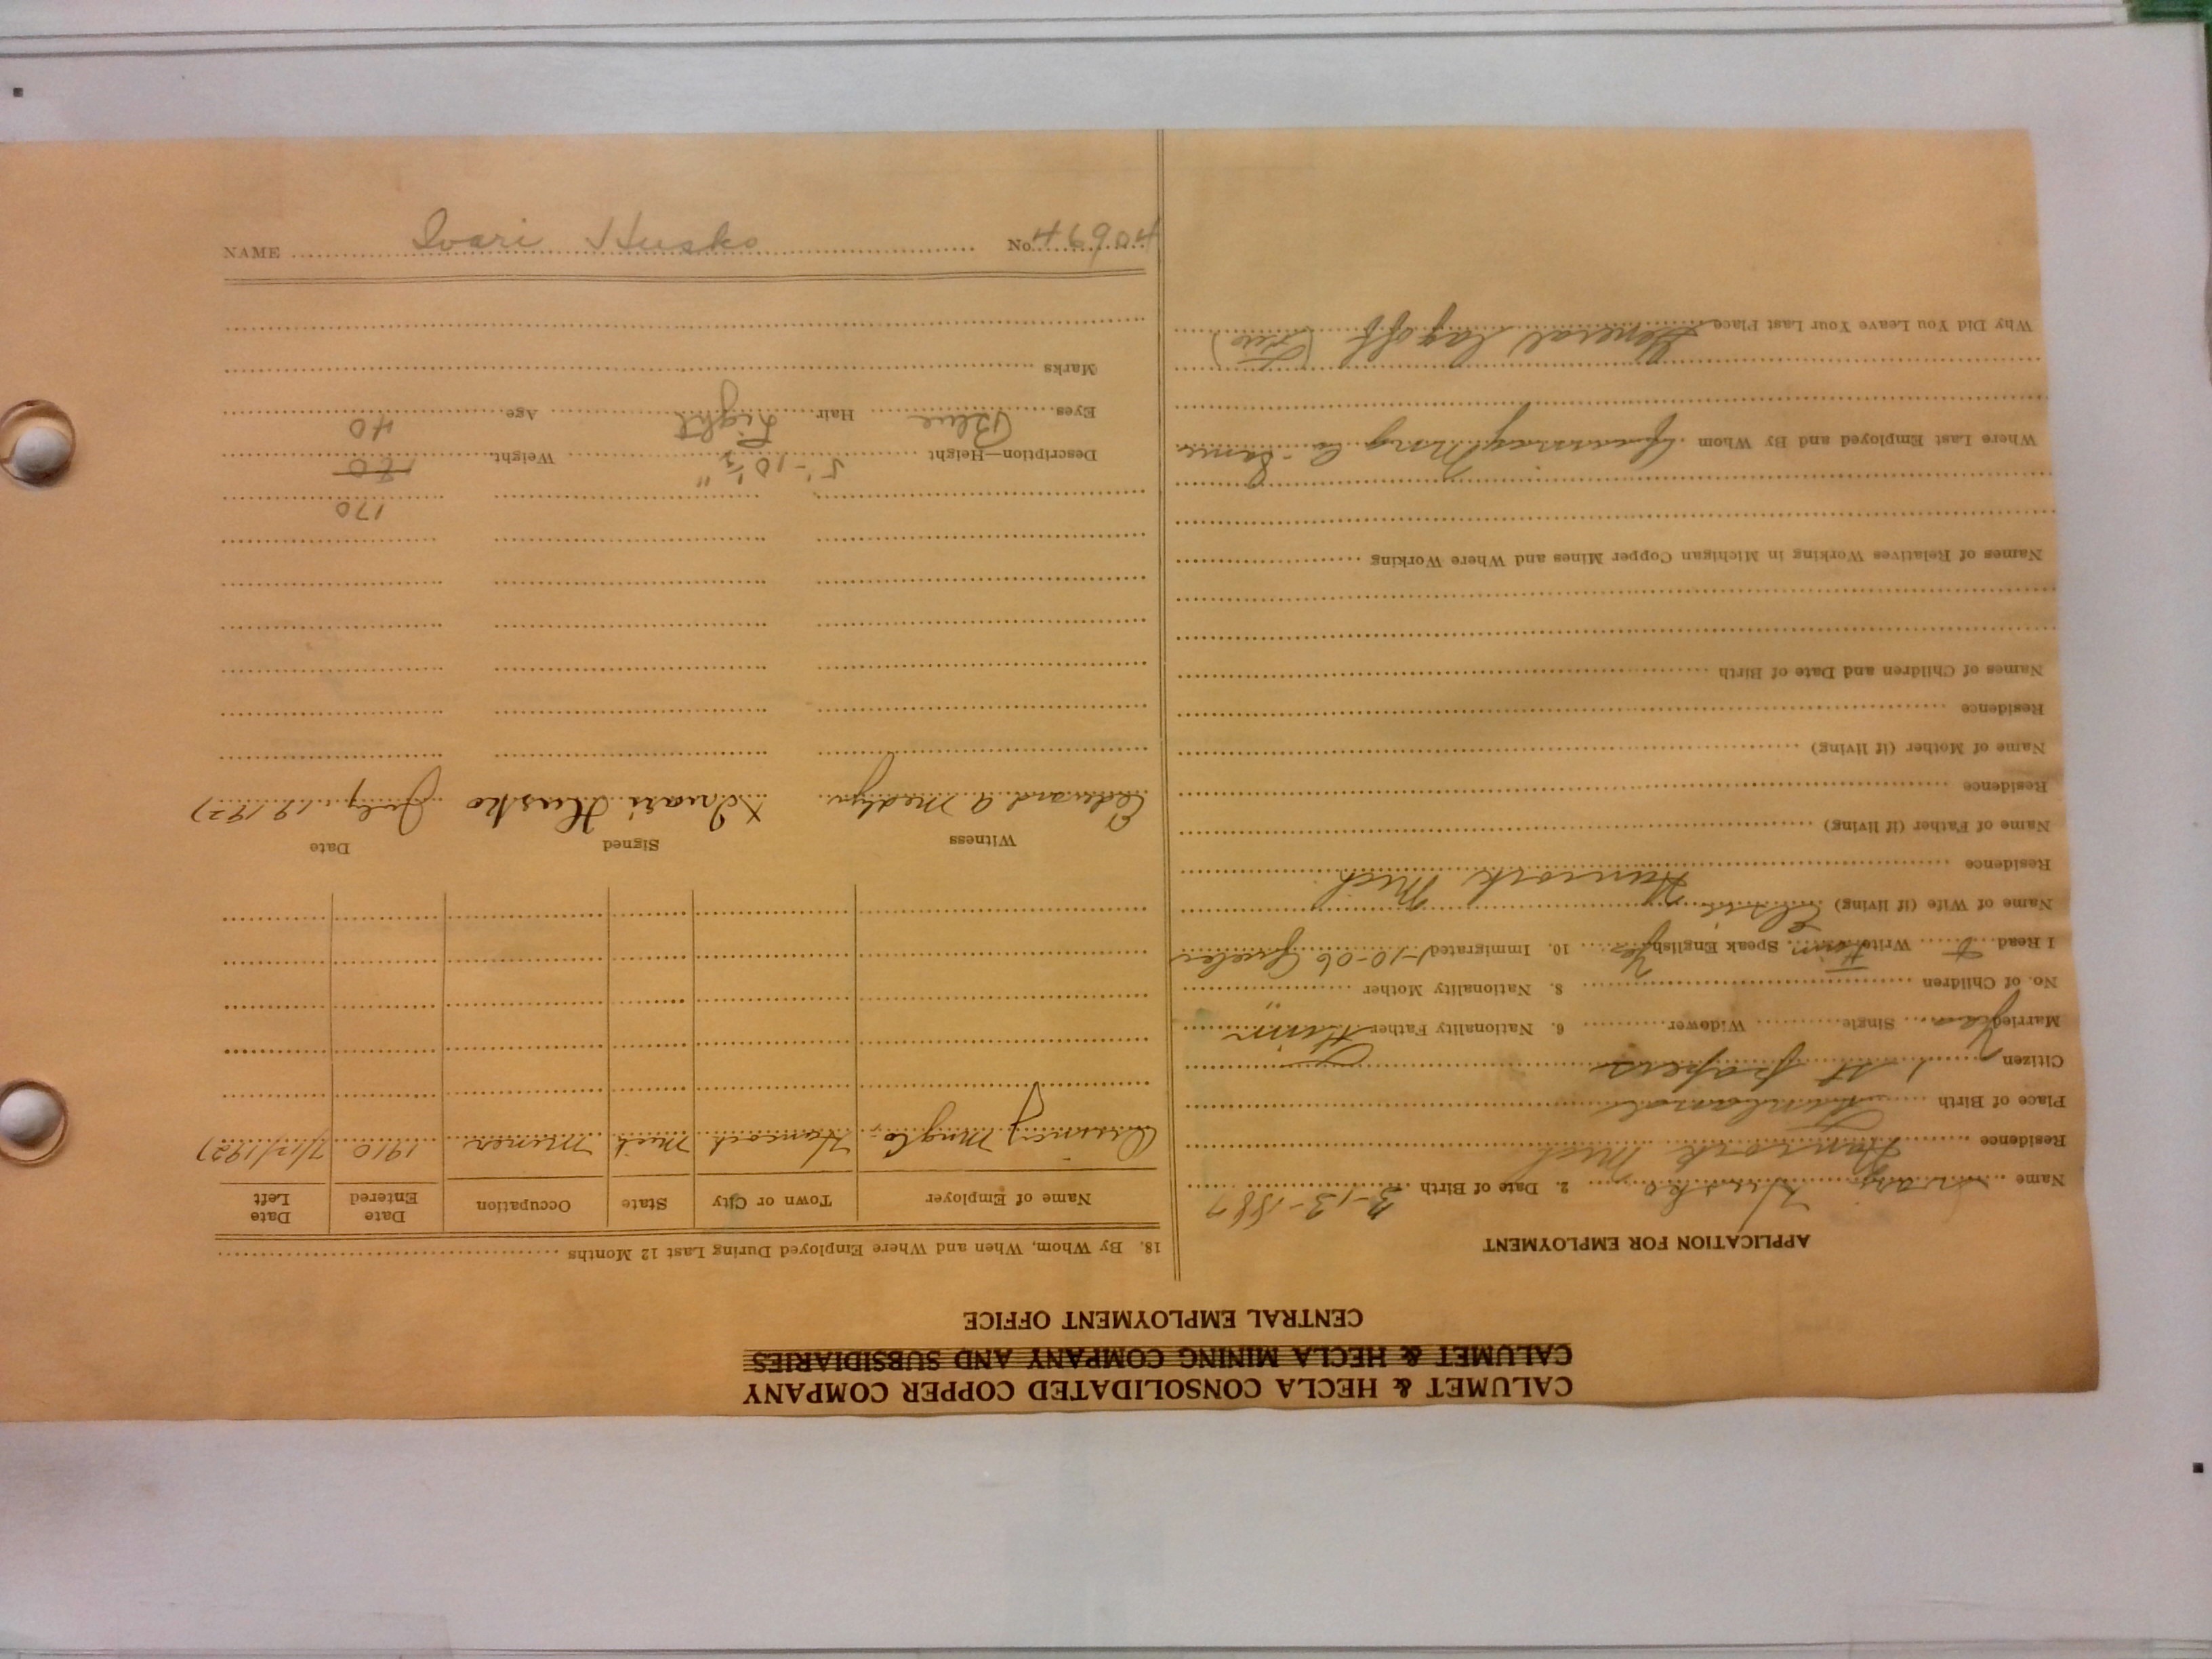 CALUMET & HECLA CONSOLIDATED COPPER COMPANY
CALUMET & HECLA MINING COMPANY AND SUBSIDIARIES
CENTRAL EMPLOYMENT OFFICE
APPLICATION FOR EMPLOYMENT
Name Ivari Husko 2. Date of Birth 3-13-1887
Residence Hancock Mich
Place of Birth Finland
Citizen 1st papers
Married Yes Single Widower 6. Nationality Father Finn
No. of Children 8. Nationality Mother "
I Read Write Finn Speak English Yes 10. Immigrated 1-10-06
Name of Wife (if living) Elsie
Residence Hancock Mich.
Name of Father (if living)
Residence
Name of Mother (if living)
Residence
Names of Children and Date of Birth
Names of Relatives Working in Michigan Copper Mines and Where Working
Where Last Employed and By Whom Quincy Mng Co.
Why Did You Leave Your Last Place General lay off (Fire)
18. By Whom, When and Where Employed During Last 12 Months
Name of Employer Town or City State Occupation Date Entered Date Left
Quincy Mng Co. Hancock Mich Miner 1910 7/12/1927
Witness Signed Date
Edward A Medlyn X Ivari Husko July 19 1927
170
Description—Height 5'-10 1/2" Weight 180
Eyes Blue Hair Light Age 40
Marks
NAME Ivari Husko No. 46904